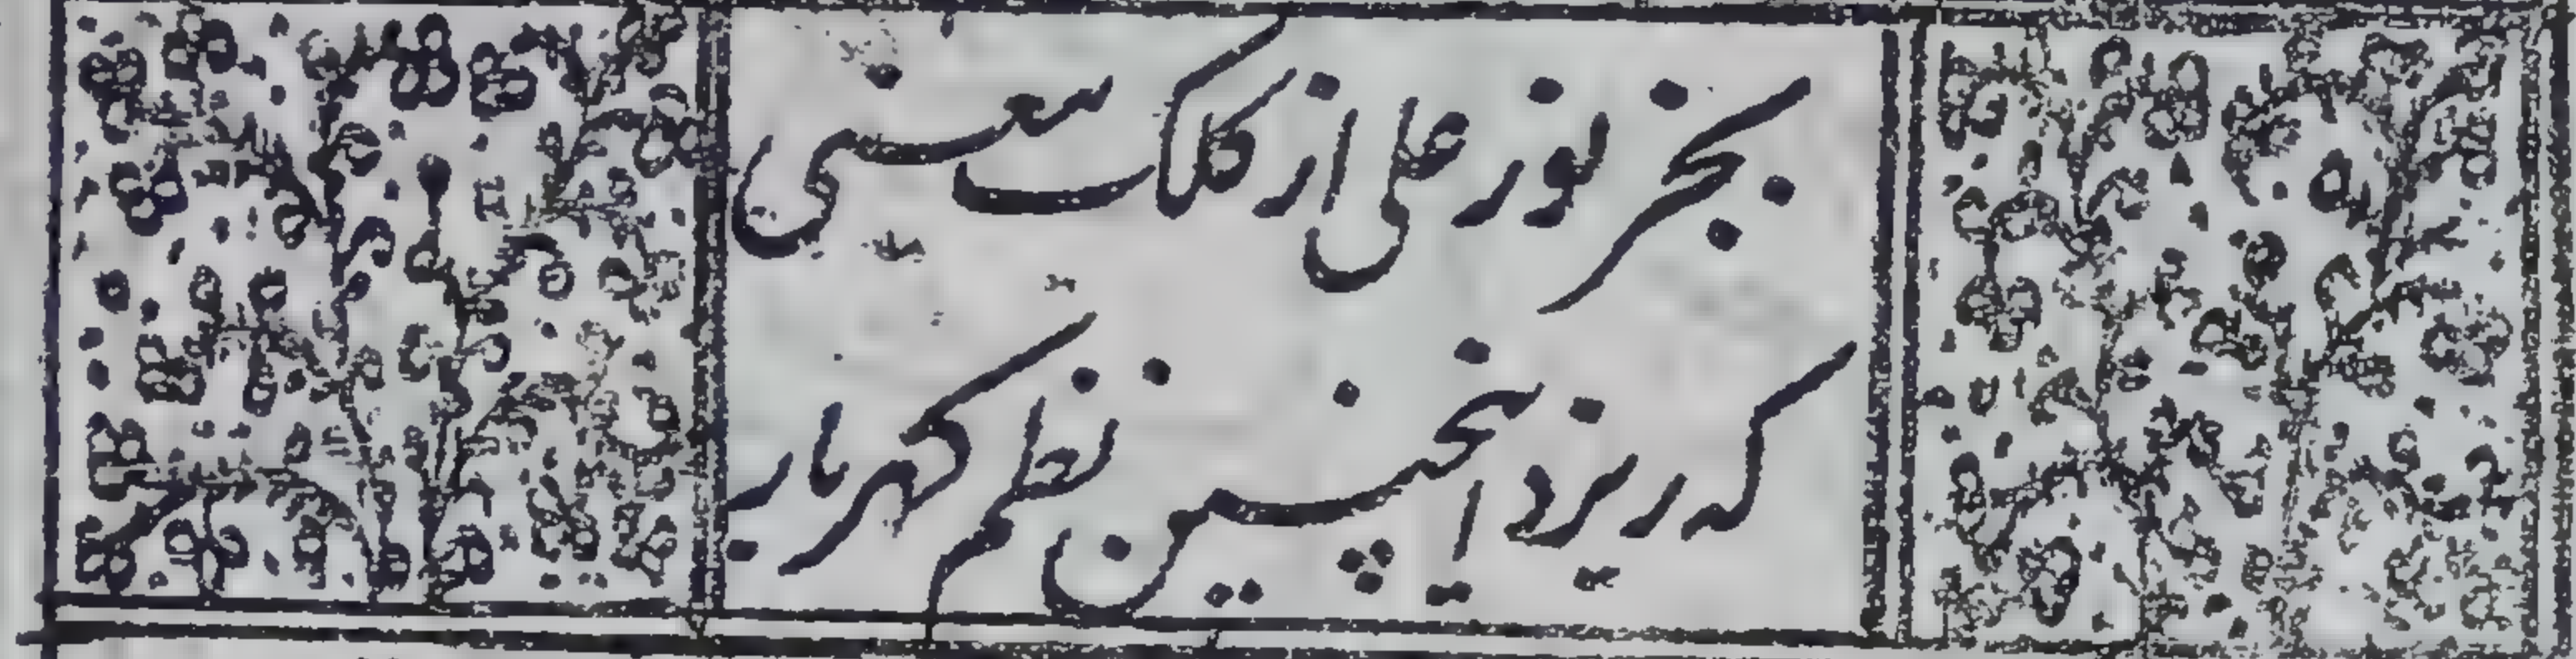 بجز نور علی از کلک معنی
که ریزد اینچنین نظم کهربار